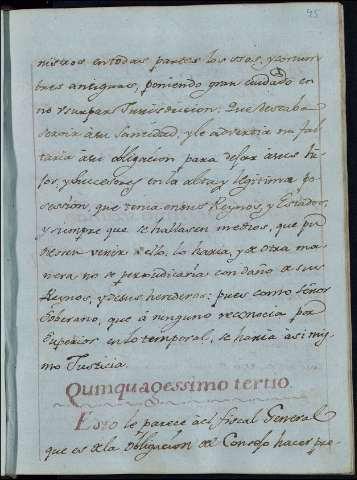 95
nistros en todas partes los usos, y costum
bres antiguas, poniendo gran cuidado en
no usurpar Jurisdiccion: Que deseaba
servir à su Santidad, y le advertia no fal
taria à su obligacion para dejar à sus hi
jos, y Succesores en la alta y legitima po
sesion, que tenia en sus Reynos, y Estados,
y siempre que se hallasen medios, que pu
diesen venir à ello, lo haria, y de otra ma
nera no se perjudicaria con daño de sus
Reynos, y de sus herederos: pues como señor
Soberano, que à ninguno reconocia por
Superior en lo temporal, se haria à si mis
mo Justicia.
Quinquagessimo tertio.
Esto le parece àel fiscal General
que es de la Obligacion de Consejo hacer pre-